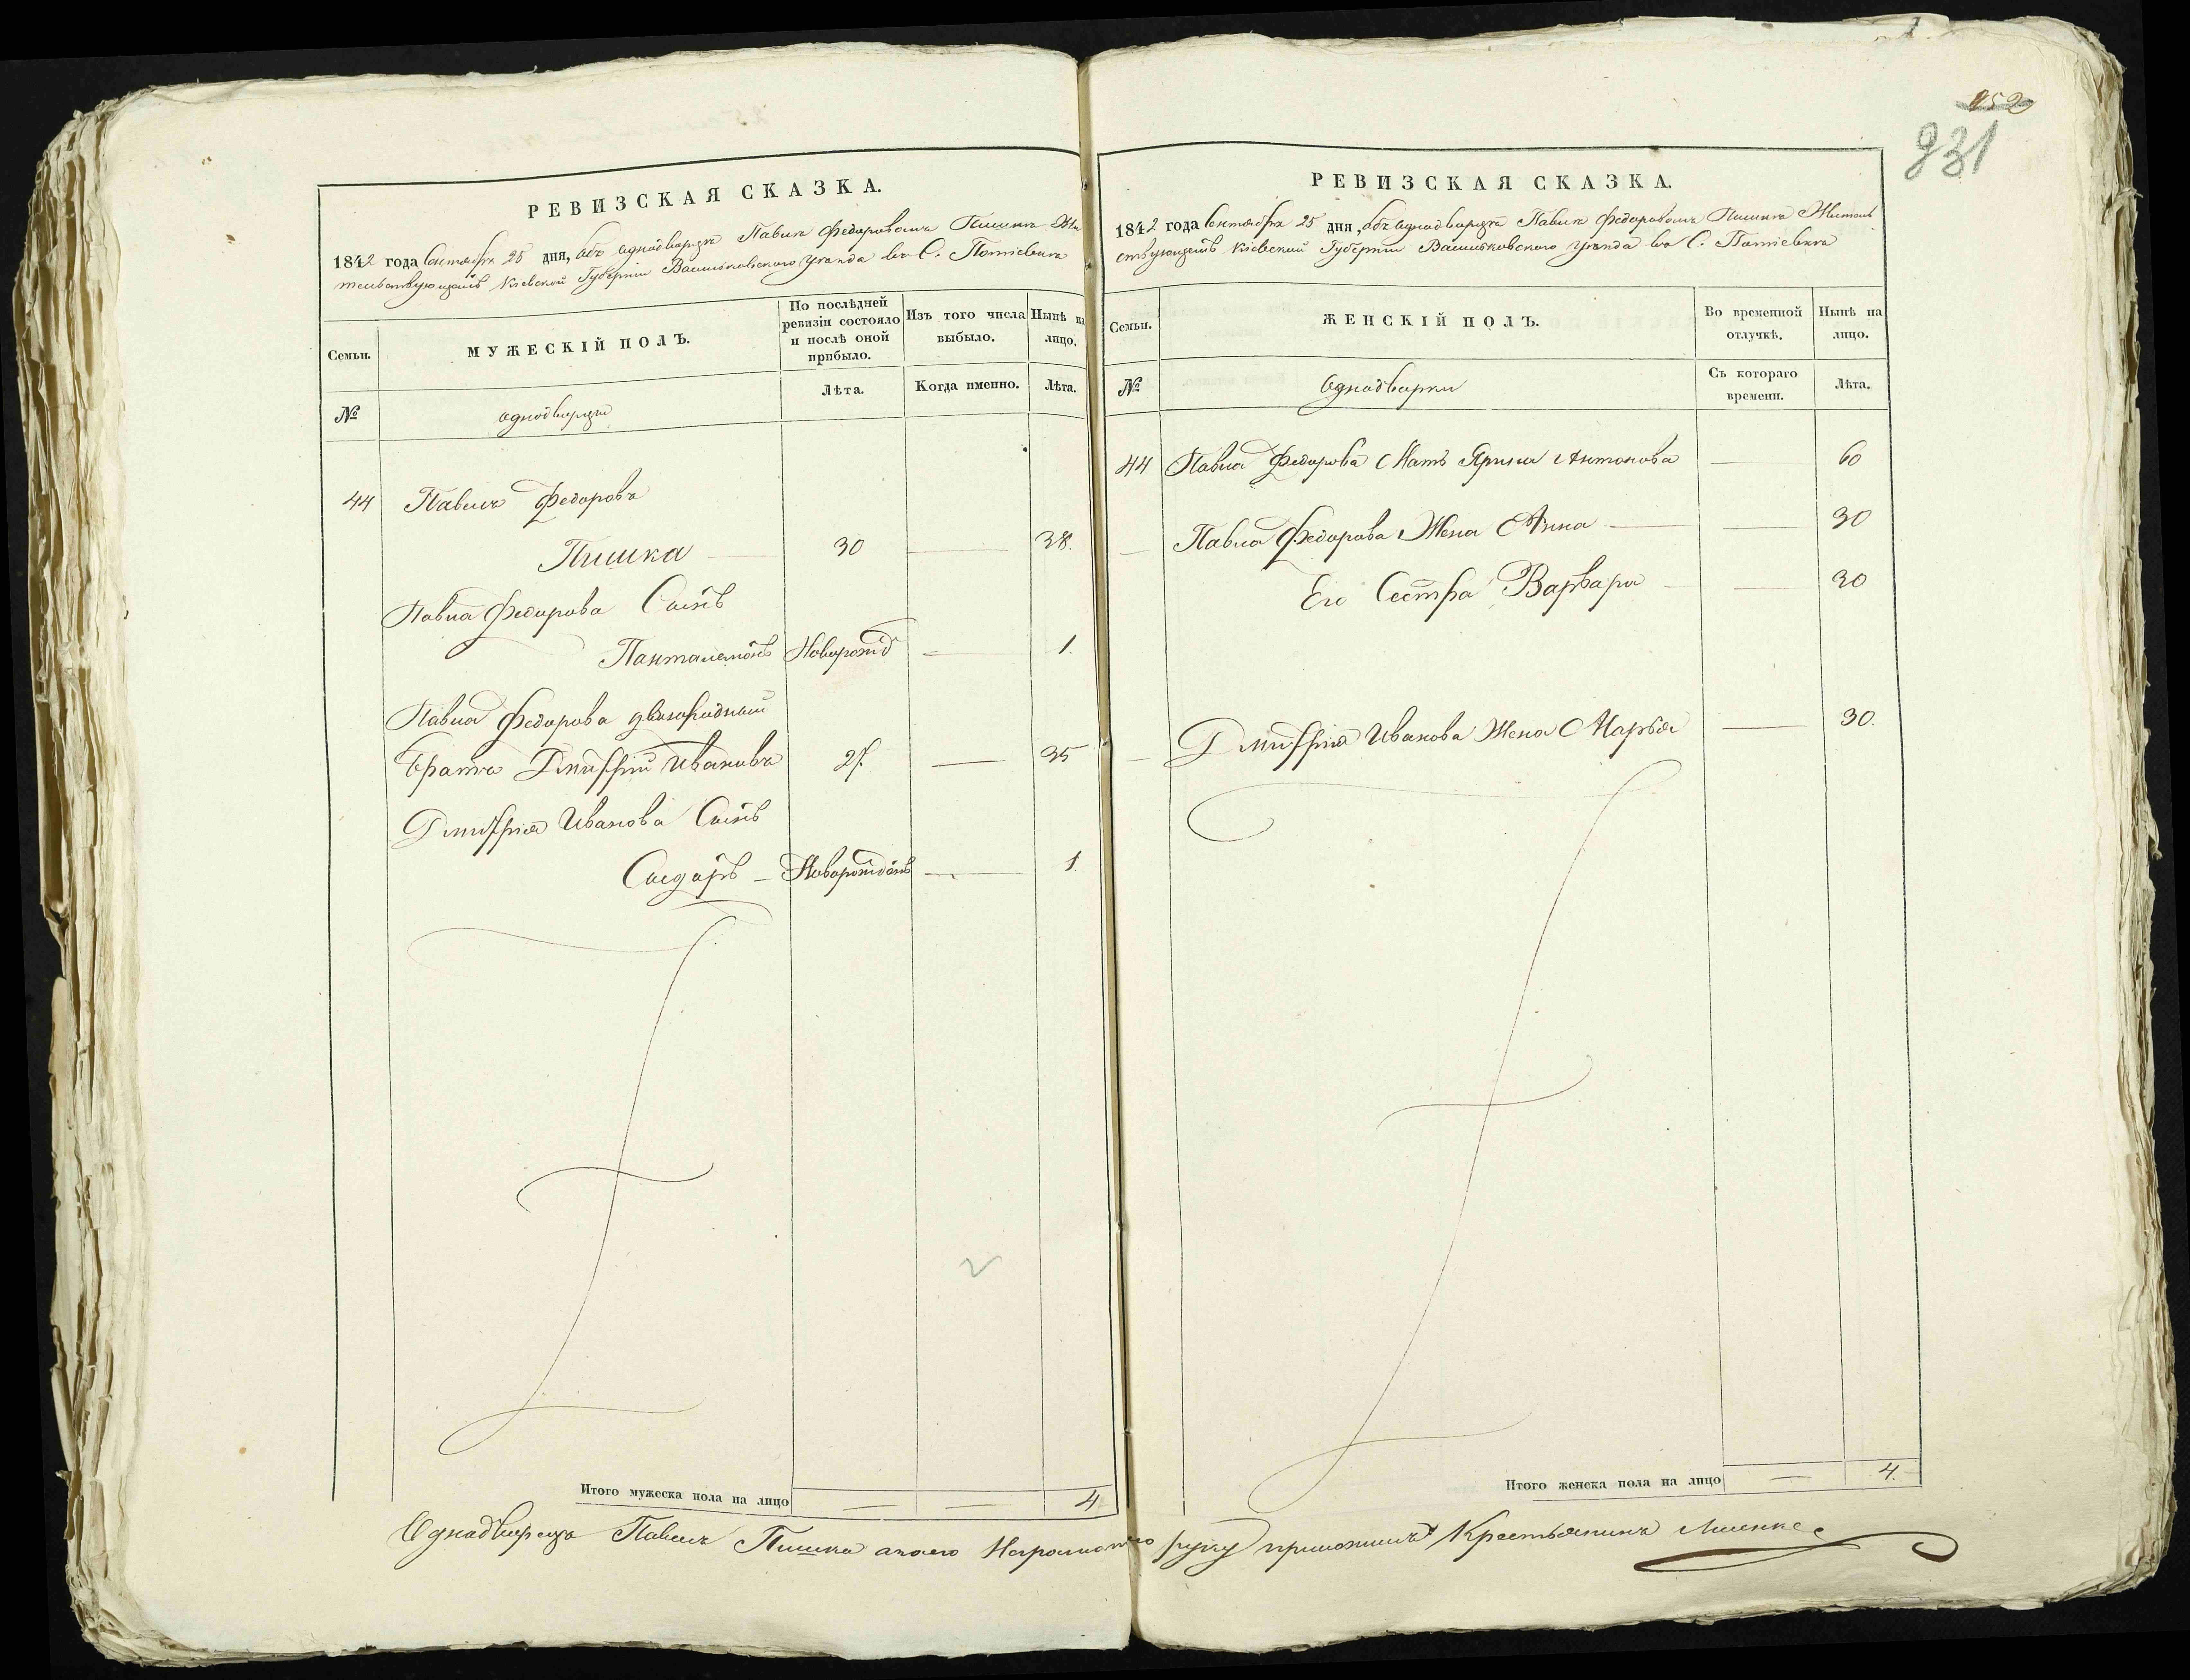 252
231
РЕВИЗСКАЯ СКАЗКА.
1842 года Октября 25 дня, объ однодворцѣ Павлѣ Федоровомъ Пишкѣ Жи
тельствующемъ Кіевской Губерніи Васильковскаго уѣзда въ С. Потіевкѣ
Семьи.
МУЖЕСКІЙ ПОЛЪ.
По послѣдней ревизіи состояло и послѣ оной прибыло.
Изъ того числа выбыло.
Нынѣ на лицо.
№
однодворцы
Лѣта.
Когда именно.
Лѣта.
44 Павелъ Федоровъ
Пишка 30 — 38.
Павла Федорова Сынъ
Панталемонъ Новорожд — 1.
Павла Федорова двоюродный
братъ Дмитрій Ивановъ 27. — 35
Дмитрія Иванова Сынъ
Сидоръ — Новорожденъ — 1
Итого мужеска пола на лицо — — 4
РЕВИЗСКАЯ СКАЗКА.
1842 года Октября 25 дня, объ однодворцѣ Павлѣ Федоровомъ Пишкѣ Житель
ствующемъ Кіевской Губерніи Васильковскаго уѣзда въ С. Потіевкѣ
Семьи.
ЖЕНСКІЙ ПОЛЪ.
Во временной отлучкѣ.
Нынѣ на лицо.
№
Однодворки
Съ котораго времени.
Лѣта.
44 Павла Федорова Мать Ярина Антонова — 60
— Павла Федорова Жена Анна — — 30
Его Сестра Варвара — — 20
— Дмитрія Иванова Жена Марья — 30.
Итого женска пола на лицо — 4.
Однодворецъ Павелъ Пишка а за него Неграмотнаго руку приложилъ Крестьянинъ